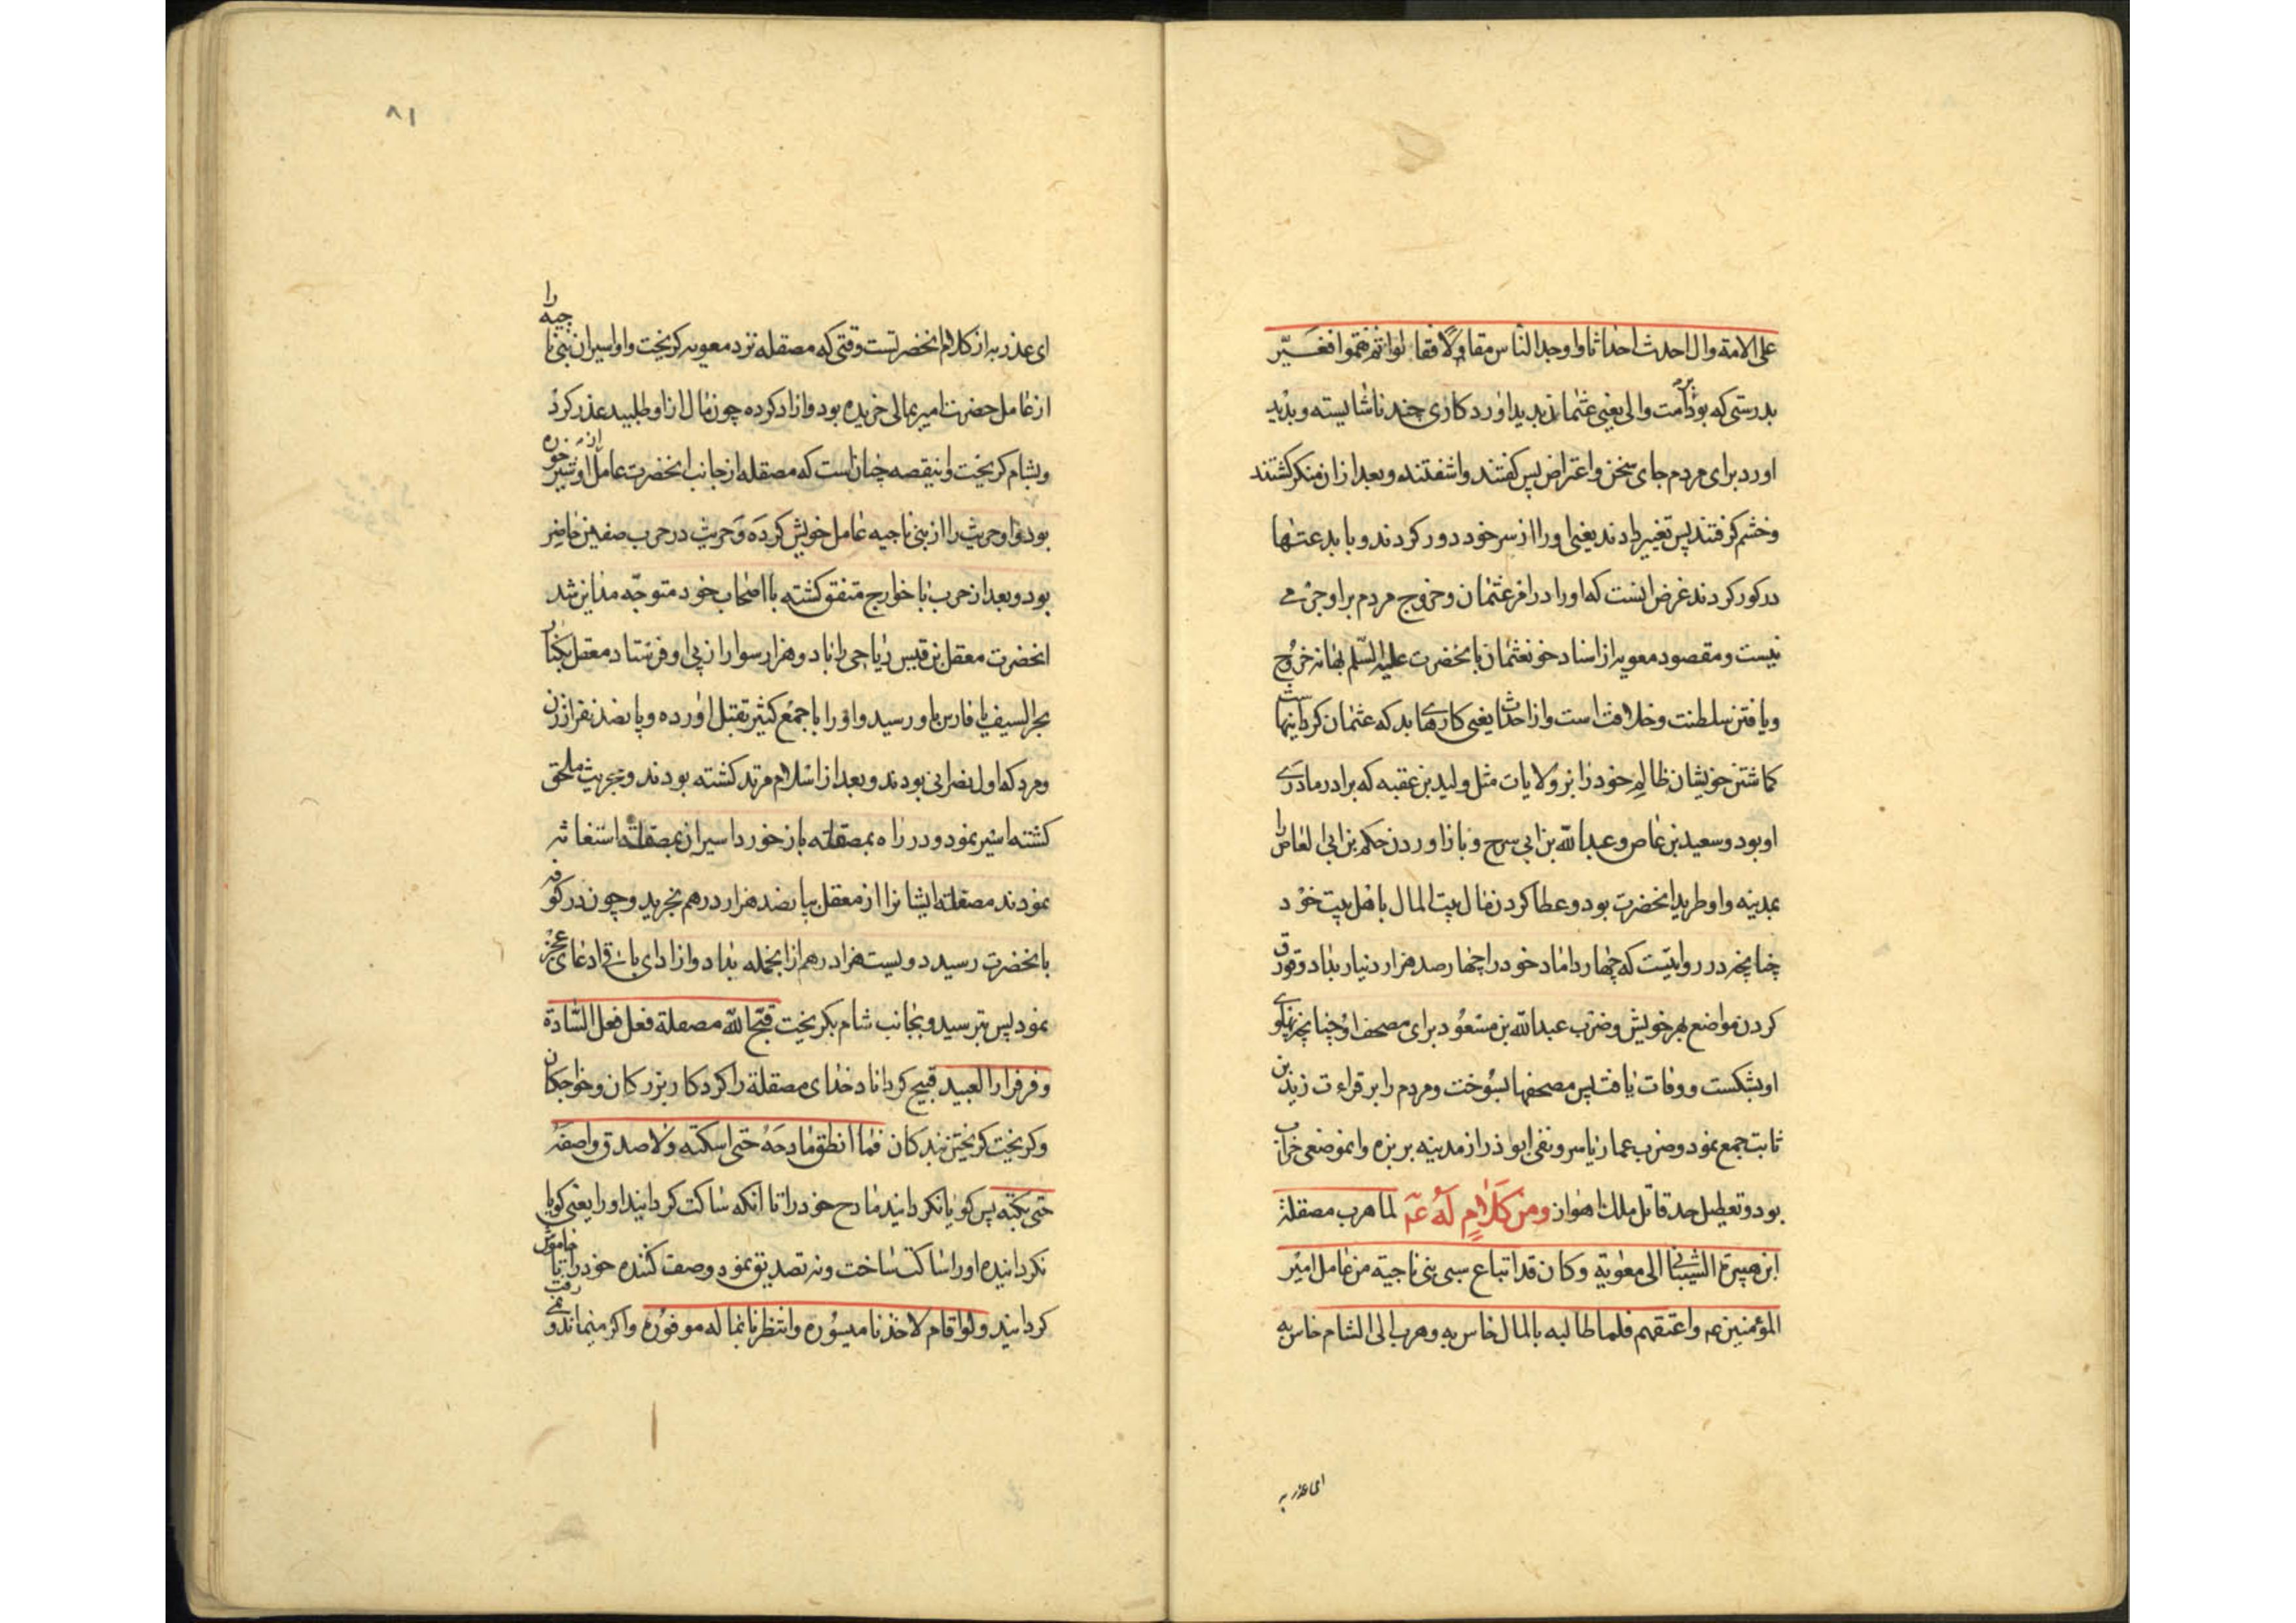 على الامة وال احدث احداثا واوجد الناس مقاولا فقالوا ثم نقموا فغيّر
بدرستى كه بود بر امت والى يعنى عثمان پديد اورد كارى چند ناشايسته و پديد
اورد براى مردم جاى سخن و اعتراض پس كفتند واشفتند و بعد از ان منكر كشتند
وخشم كرفتند پس تغيير دادند يعنى اورا از سر خود دور كردند و با بدعتها
در كور كردند غرض انست كه اورا در امر عثمان و خروج مردم بر او جرمى
نيست و مقصود معويه از اسناد خون عثمان بانحضرت عليه السلم بهانه خروج
ويافتن سلطنت و خلافت است و از احداث يعنى كارهاى بد كه عثمان كرد اينهاست
كماشتن خويشان ظالم خود را بر ولايات مثل وليد بن عقبه كه برادر مادرى
او بود و سعيد بن عاص و عبد الله بن ابى سرح و باز اوردن حكم بن ابى العاص را
بمدينه و او طريد انحضرت بود و عطا كردن مال بيت المال باهل بيت خود
چنانچه در روايتست كه چهار داماد خود را چهار صد هزار دينار بداد و قورق
كردن مواضع بهر خويش و ضرب عبد الله بن مسعود براى مصحف او چنانچه پهلوى
او بشكست و وفات يافت پس مصحفها بسوخت و مردم را بر قراءت زيد بن
ثابت جمع نمود و ضرب عمار ياسر و نفى ابوذر از مدينه بربزه و انموضعى خراب
بود و تعطيل حد قاتل ملك اهواز ومن كلام له عم لما هرب مصقلة
ابن هبيرة الشيبانى الى معوية وكان قد ابتاع سبى بنى ناجية من عامل امير
المؤمنين عم واعتقهم فلما طالبه بالمال خاس به وهرب الى الشام خاس به
اى عذر به
٨١
اى عذر به از كلام انحضرتست وقتى كه مصقله نزد معويه كريخت و او اسيران بنى ناجيه را
از عامل حضرت امير بمالى خريده بود و ازاد كرده چون مال از او طلبيد عذر كرد
وبشام كريخت و اينقصه چنان است كه مصقله از جانب انحضرت عامل اردشير خوره
بود و او حريث را از بنى ناجيه عامل خويش كرده و حريث در حرب صفين حاضر
بود و بعد از حرب با خوارج متفق كشته با اصحاب خود متوجه مداين شد
انحضرت معقل بن قيس رياحى را با دو هزار سوار از پى او فرستاد معقل بكنار
بحر السيف يا فارس باو رسيد و او را با جمع كثير بقتل اورده و پانصد نفر از زن
ومرد كه اول نصرانى بودند و بعد از اسلام مرتد كشته بودند و بحريث ملحق
كشته اسير نمود و در راه بمصقله باز خورد اسيران بمصقله استغاثه
نمودند مصقله ايشانرا از معقل بپانصد هزار درهم بخريد و چون در كوفه
بانحضرت رسيد دويست هزار درهم از انجمله بداد و از اداى باقى ادعاى عجز
نمود پس بترسيد و بجانب شام بكريخت قبّح الله مصقلة فعل فعل السادة
وفر فرار العبيد قبيح كرداناد خداى مصقلة را كرد كار بزركان و خواجكان
وكريخت كريختن بندكان فما انطق مادحه حتى اسكته ولا صدق واصفه
حتى بكته پس كويا نكردانيد مادح خود را تا انكه ساكت كردانيد او را يعنى كويا
نكردانيده اورا ساكت ساخت و نه تصديق نمود وصف كننده خود را تا خاموش
كردانيد ولو اقام لاخذنا ميسوره وانتظرنا بماله موفوره واكر ميماند و نمى رفت